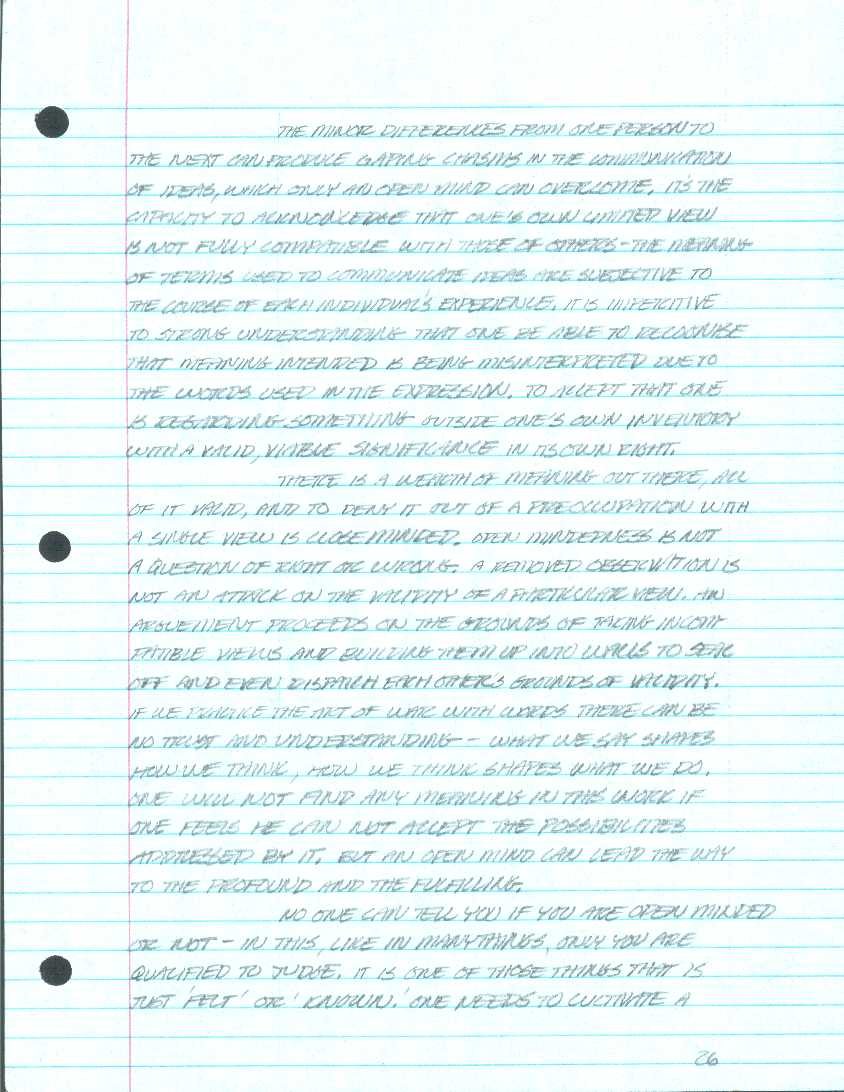 THE MINOR DIFFERENCES FROM ONE PERSON TO
THE NEXT CAN PRODUCE GAPING CHASMS IN THE COMMUNICATION
OF IDEAS, WHICH ONLY AN OPEN MIND CAN OVERCOME. IT'S THE
CAPACITY TO ACKNOWLEDGE THAT ONE'S OWN LIMITED VIEW
IS NOT FULLY COMPATIBLE WITH THOSE OF OTHERS - THE MEANING
OF TERMS USED TO COMMUNICATE IDEAS ARE SUBJECTIVE TO
THE COURSE OF EACH INDIVIDUAL'S EXPERIENCE. IT IS IMPERITIVE
TO STRONG UNDERSTANDING THAT ONE BE ABLE TO RECOGNISE
THAT MEANING INTENDED IS BEING MISINTERPRETED DUE TO
THE WORDS USED IN THE EXPRESSION. TO ACCEPT THAT ONE
IS REGARDING SOMETHING OUTSIDE ONE'S OWN INVENTORY
WITH A VALID, VIABLE SIGNIFICANCE IN ITS OWN RIGHT.
THERE IS A WEALTH OF MEANING OUT THERE, ALL
OF IT VALID, AND TO DENY IT OUT OF A PREOCCUPATION WITH
A SINGLE VIEW IS CLOSE MINDED. OPEN MINDEDNESS IS NOT
A QUESTION OF RIGHT OR WRONG. A REMOVED OBSERVATION IS
NOT AN ATTACK ON THE VALIDITY OF A PARTICULAR VIEW. AN
ARGUEMENT PROCEEDS ON THE GROUNDS OF TAKING INCOM
PATIBLE VIEWS AND BUILDING THEM UP INTO WALLS TO SEAL
OFF AND EVEN DISPATCH EACH OTHERS GROUNDS OF VALIDITY.
IF WE PRACTICE THE ART OF WAR WITH WORDS THERE CAN BE
NO TRUST AND UNDERSTANDING - WHAT WE SAY SHAPES
HOW WE THINK, HOW WE THINK SHAPES WHAT WE DO.
ONE WILL NOT FIND ANY MEANING IN THIS WORK IF
ONE FEELS HE CAN NOT ACCEPT THE POSSIBILITIES
ADDRESSED BY IT. BUT AN OPEN MIND CAN LEAD THE WAY
TO THE PROFOUND AND THE FULFILLING.
NO ONE CAN TELL YOU IF YOU ARE OPEN MINDED
OR NOT - IN THIS, LIKE IN MANY THINGS, ONLY YOU ARE
QUALIFIED TO JUDGE. IT IS ONE OF THOSE THINGS THAT IS
JUST 'FELT' OR 'KNOWN.' ONE NEEDS TO CULTIVATE A
26